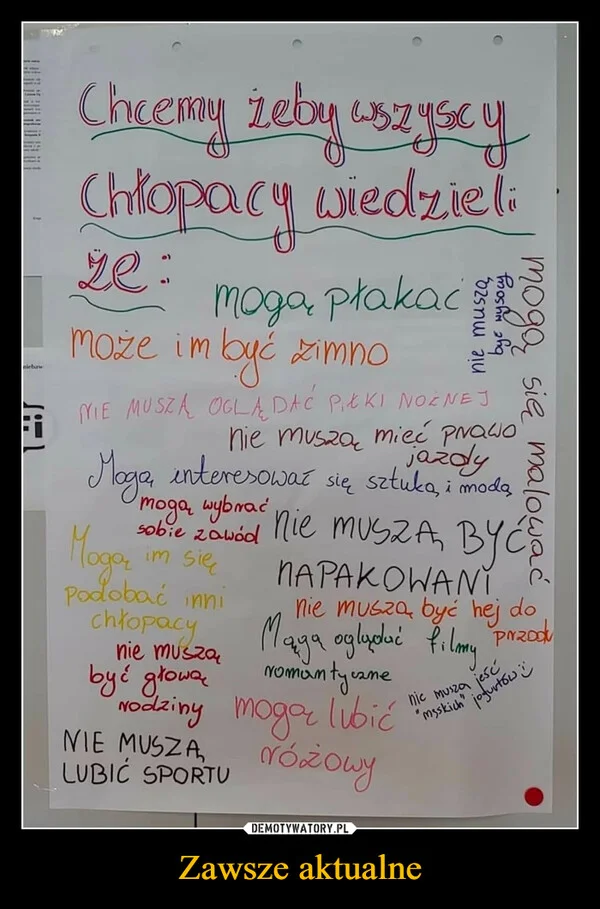 Chcemy żeby wszyscy
Chłopacy wiedzieli
że:
mogą płakać
nie muszą
być wysocy
mogą się malować
może im być zimno
NIE MUSZĄ OGLĄDAĆ PIŁKI NOŻNEJ
nie muszą mieć prawo
jazdy
Mogą interesować się sztuką i modą
mogą wybrać
sobie zawód
nie MUSZĄ BYĆ
NAPAKOWANI
Mogą im się
podobać inni
chłopacy
nie muszą być hej do
przodu
Mogą oglądać filmy
romantyczne
nie muszą
być głową
rodziny
nie muszą jeść
"męskich" jogurtów
mogą lubić
różowy
NIE MUSZĄ
LUBIĆ SPORTU
DEMOTYWATORY.PL
Zawsze aktualne